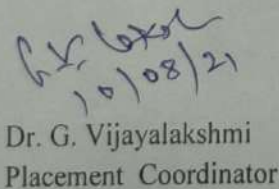 10/08/21
Dr. G. Vijayalakshmi
Placement Coordinator